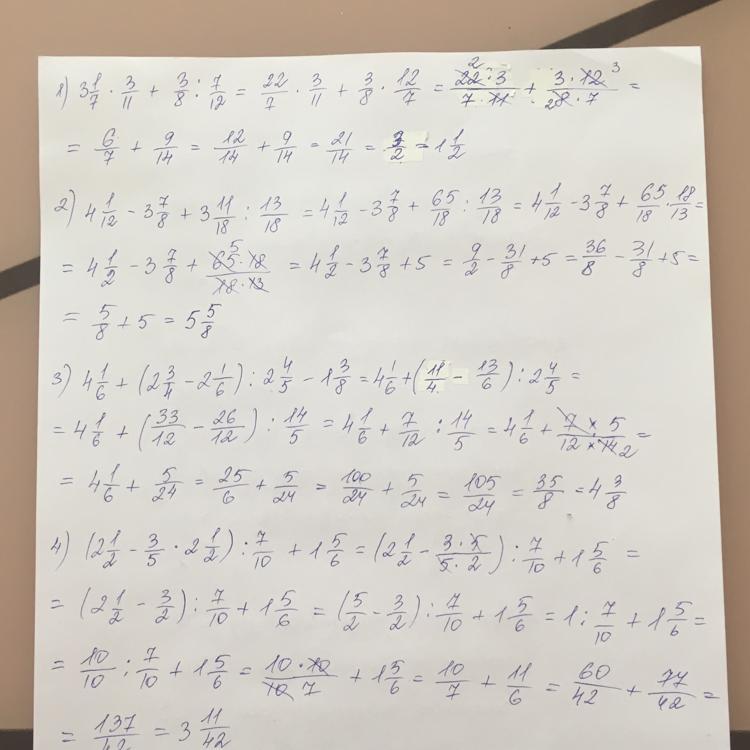 1) 3 1/7 · 3/11 + 3/8 : 7/12 = 22/7 · 3/11 + 3/8 · 12/7 = 2 22 · 3 / 7 · 11 + 3 · 12 3 / 2 8 · 7 =
= 6/7 + 9/14 = 12/14 + 9/14 = 21/14 = 3/2 = 1 1/2
2) 4 1/12 - 3 7/8 + 3 11/18 : 13/18 = 4 1/12 - 3 7/8 + 65/18 : 13/18 = 4 1/12 - 3 7/8 + 65/18 · 18/13 =
= 4 1/2 - 3 7/8 + 5 65 · 18 / 18 · 13 = 4 1/2 - 3 7/8 + 5 = 9/2 - 31/8 + 5 = 36/8 - 31/8 + 5 =
= 5/8 + 5 = 5 5/8
3) 4 1/6 + (2 3/4 - 2 1/6) : 2 4/5 - 1 3/8 = 4 1/6 + (11/4 - 13/6) : 2 4/5 =
= 4 1/6 + (33/12 - 26/12) : 14/5 = 4 1/6 + 7/12 : 14/5 = 4 1/6 + 7 × 5 / 12 × 14 2 =
= 4 1/6 + 5/24 = 25/6 + 5/24 = 100/24 + 5/24 = 105/24 = 35/8 = 4 3/8
4) (2 1/2 - 3/5 · 2 1/2) : 7/10 + 1 5/6 = (2 1/2 - 3 · 5 / 5 · 2) : 7/10 + 1 5/6 =
= (2 1/2 - 3/2) : 7/10 + 1 5/6 = (5/2 - 3/2) : 7/10 + 1 5/6 = 1 : 7/10 + 1 5/6 =
= 10/10 : 7/10 + 1 5/6 = 10 · 10 / 10 7 + 1 5/6 = 10/7 + 11/6 = 60/42 + 77/42 =
= 137/42 = 3 11/42